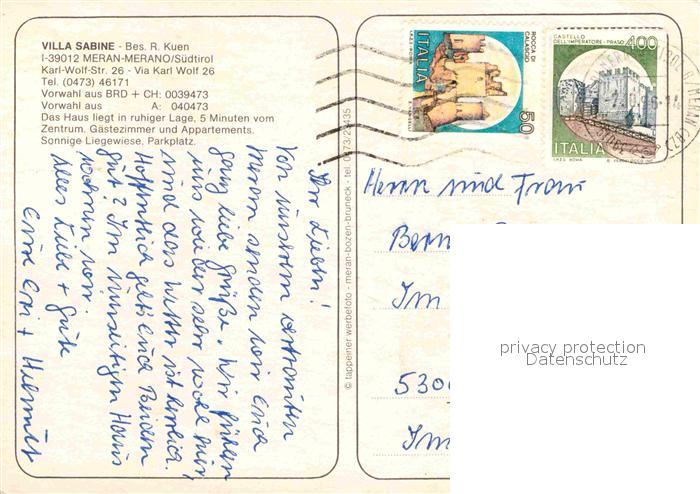 VILLA SABINE - Bes. R. Kuen
I-39012 MERAN-MERANO/Südtirol
Karl-Wolf-Str. 26 - Via Karl Wolf 26
Tel. (0473) 46171
Vorwahl aus BRD + CH: 0039473
Vorwahl aus A: 040473
Das Haus liegt in ruhiger Lage, 5 Minuten vom
Zentrum. Gästezimmer und Appartements.
Sonnige Liegewiese, Parkplatz.
Ihr Lieben!
Von unserem
Meran senden wir Euch
ganz liebe Grüße. Wir fühlen
uns wieder sehr wohl hier
und das Wetter ist herrlich.
Hoffentlich geht's Euch Beiden
gut? Im Haus
wohnen wir.
Alles Liebe + Gute
Eure + Helmut
© tappeiner werbefoto - meran-bozen-bruneck - tel. 0473/29435
ROCCA DI
CALASCIO
ITALIA
50
CASTELLO
DELL'IMPERATORE-PRATO
400
ITALIA
I.P.Z.S. ROMA
Herrn und Frau
Im
Im
privacy protection
Datenschutz